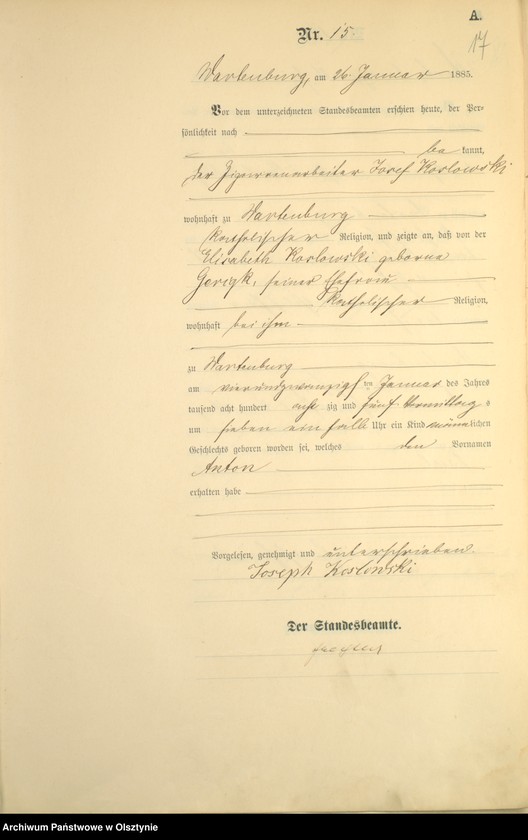 A.
17
Nr. 15
Wartenburg, am 26 Januar 1885.
Vor dem unterzeichneten Standesbeamten erschien heute, der Per-
sönlichkeit nach
be kannt,
der Zigarrenarbeiter Josef Koslowski
wohnhaft zu Wartenburg
katholischer Religion, und zeigte an, daß von der
Elisabeth Koslowski geborne
seiner Ehefrau
katholischer Religion,
wohnhaft bei ihm
zu Wartenburg
am vierundzwanzigsten Januar des Jahres
tausend acht hundert acht zig und fünf Vormittags
um sieben ein halb Uhr ein Kind männlichen
Geschlechts geboren worden sei, welches den Vornamen
Anton
erhalten habe
Vorgelesen, genehmigt und unterschrieben.
Joseph Koslowski
Der Standesbeamte.
Archiwum Państwowe w Olsztynie